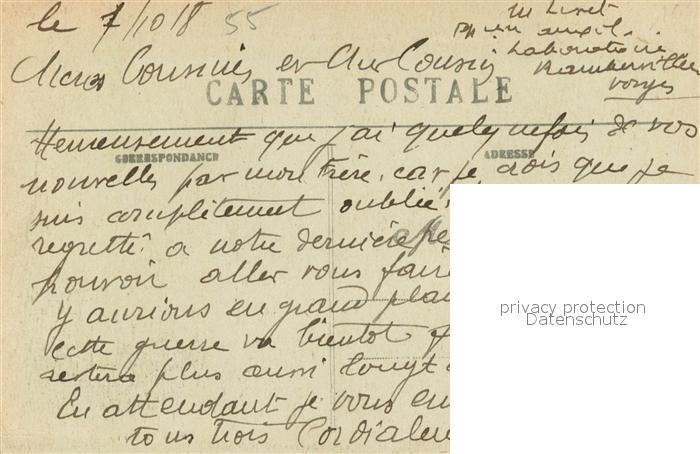 le 7/10 18 55
M Livet
Ph auxil.
Laboratoire
Rambervillers
Vosges
Chères Cousines et Cher Cousin
CARTE POSTALE
Heureusement que j'ai quelquefois de vos
CORRESPONDANCE ADRESSE
nouvelles par mon frère, car je crois que je
suis complètement oublié.
regretté à notre dernière pe
pouvoir aller vous faire
y aurions eu grand plai
cette guerre va bientôt
restera plus aussi longt
En attendant je vous en
tous trois Cordialem
privacy protection
Datenschutz